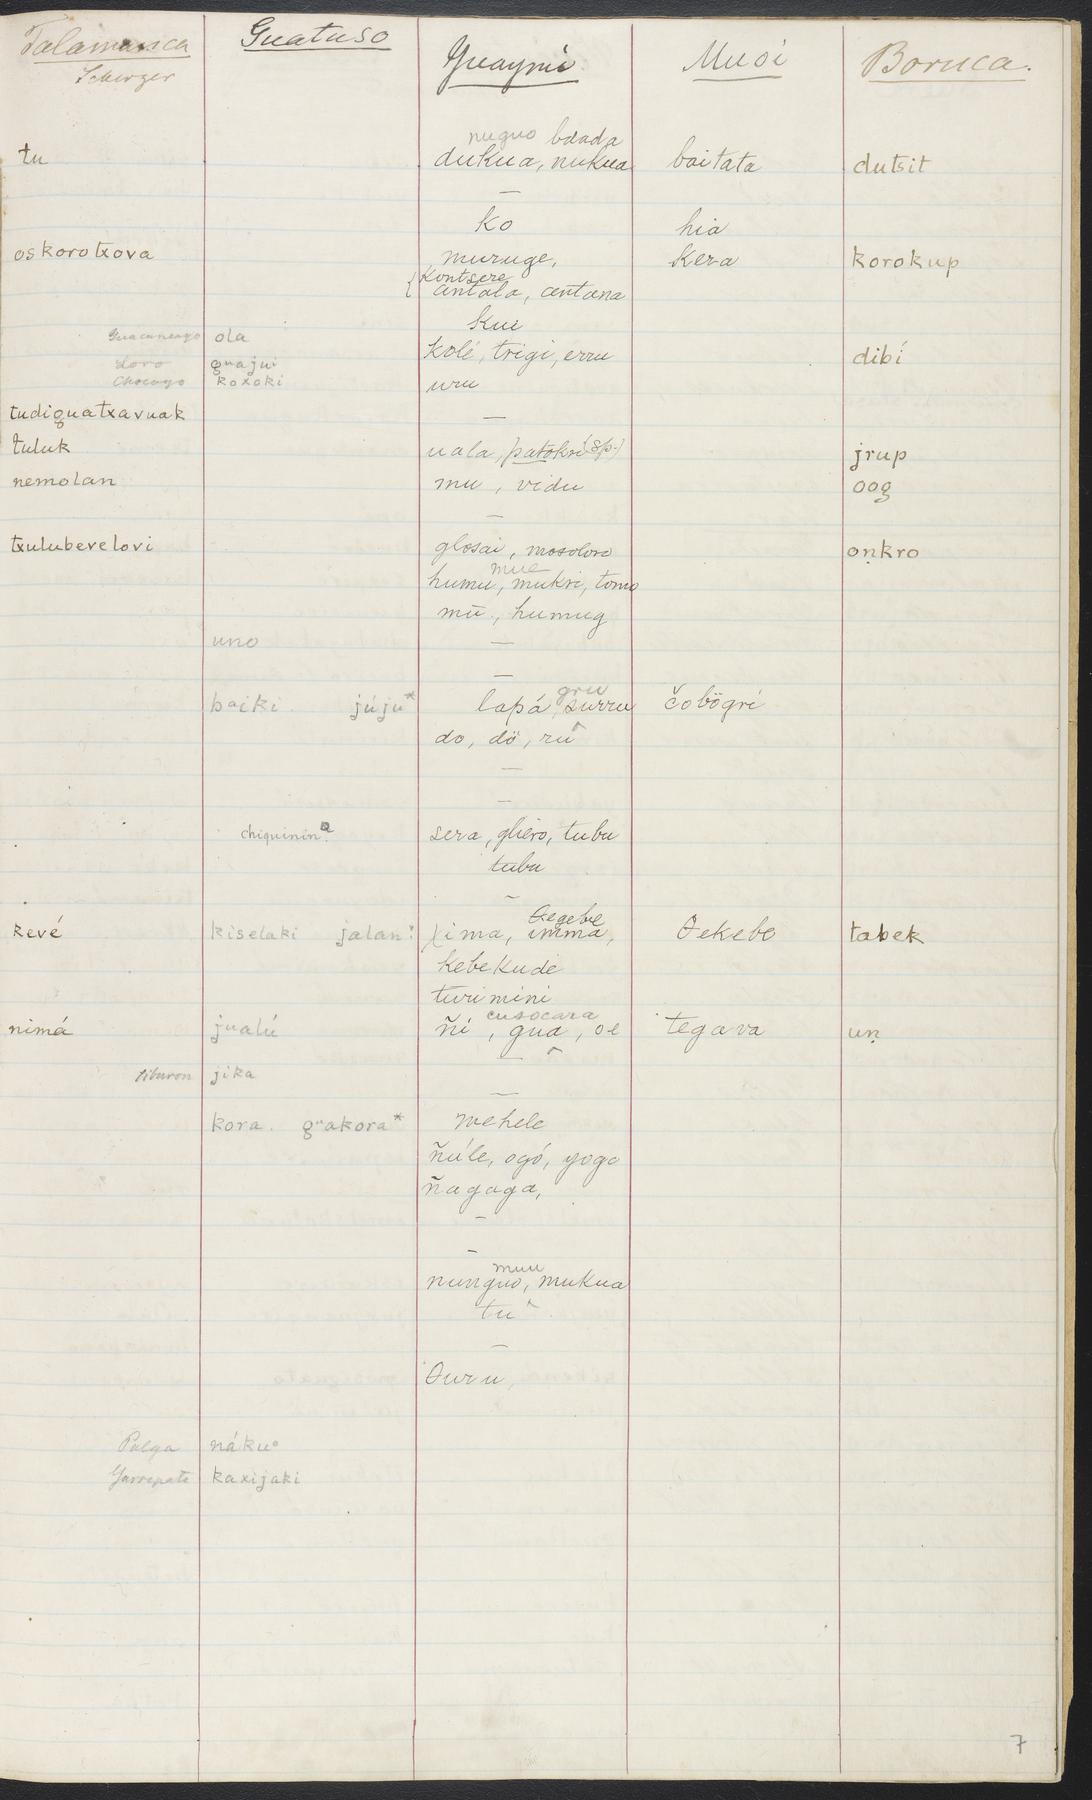 Talamanca Guatuso Guaymi Muoi Boruca.
Scherzer
nuguo bdada
tu dukua, nukua boitata dutsit
—
ko hia
oskorotxova muruge, kera korokup
{kontsere
antala, antana
kui
ola
kolé, trigi, erru dibí
Loro guajui
uru
koxoki
tudiguatxavuak —
tuluk uala, patokri (sp.) jrup
nemolan mu, vidu oog
—
txuluberelovi glosai, mosoloro oṇkro
mue
humu, mukri, tomo
mū., humug
uno —
—
gru
baiki júju* lapá, surru čobögrí
do, dö, rû
—
—
chiquinina sera, gliero, tubu
tubu
—
θegebe
kevé kiselaki jalan: χima, imma, θekebe tabek
kebekude
turimini
cusocara
nimá jualú ñi, gua, oe tegava uṇ
—
tiburon jika
—
kora. guakora* mehele
ñúle, ogó, yogo
ñagaga,
—
—
muu
nunguo, mukua
tu^
—
θuru,
Pulga náku°
Garrapata kaxijaki
7